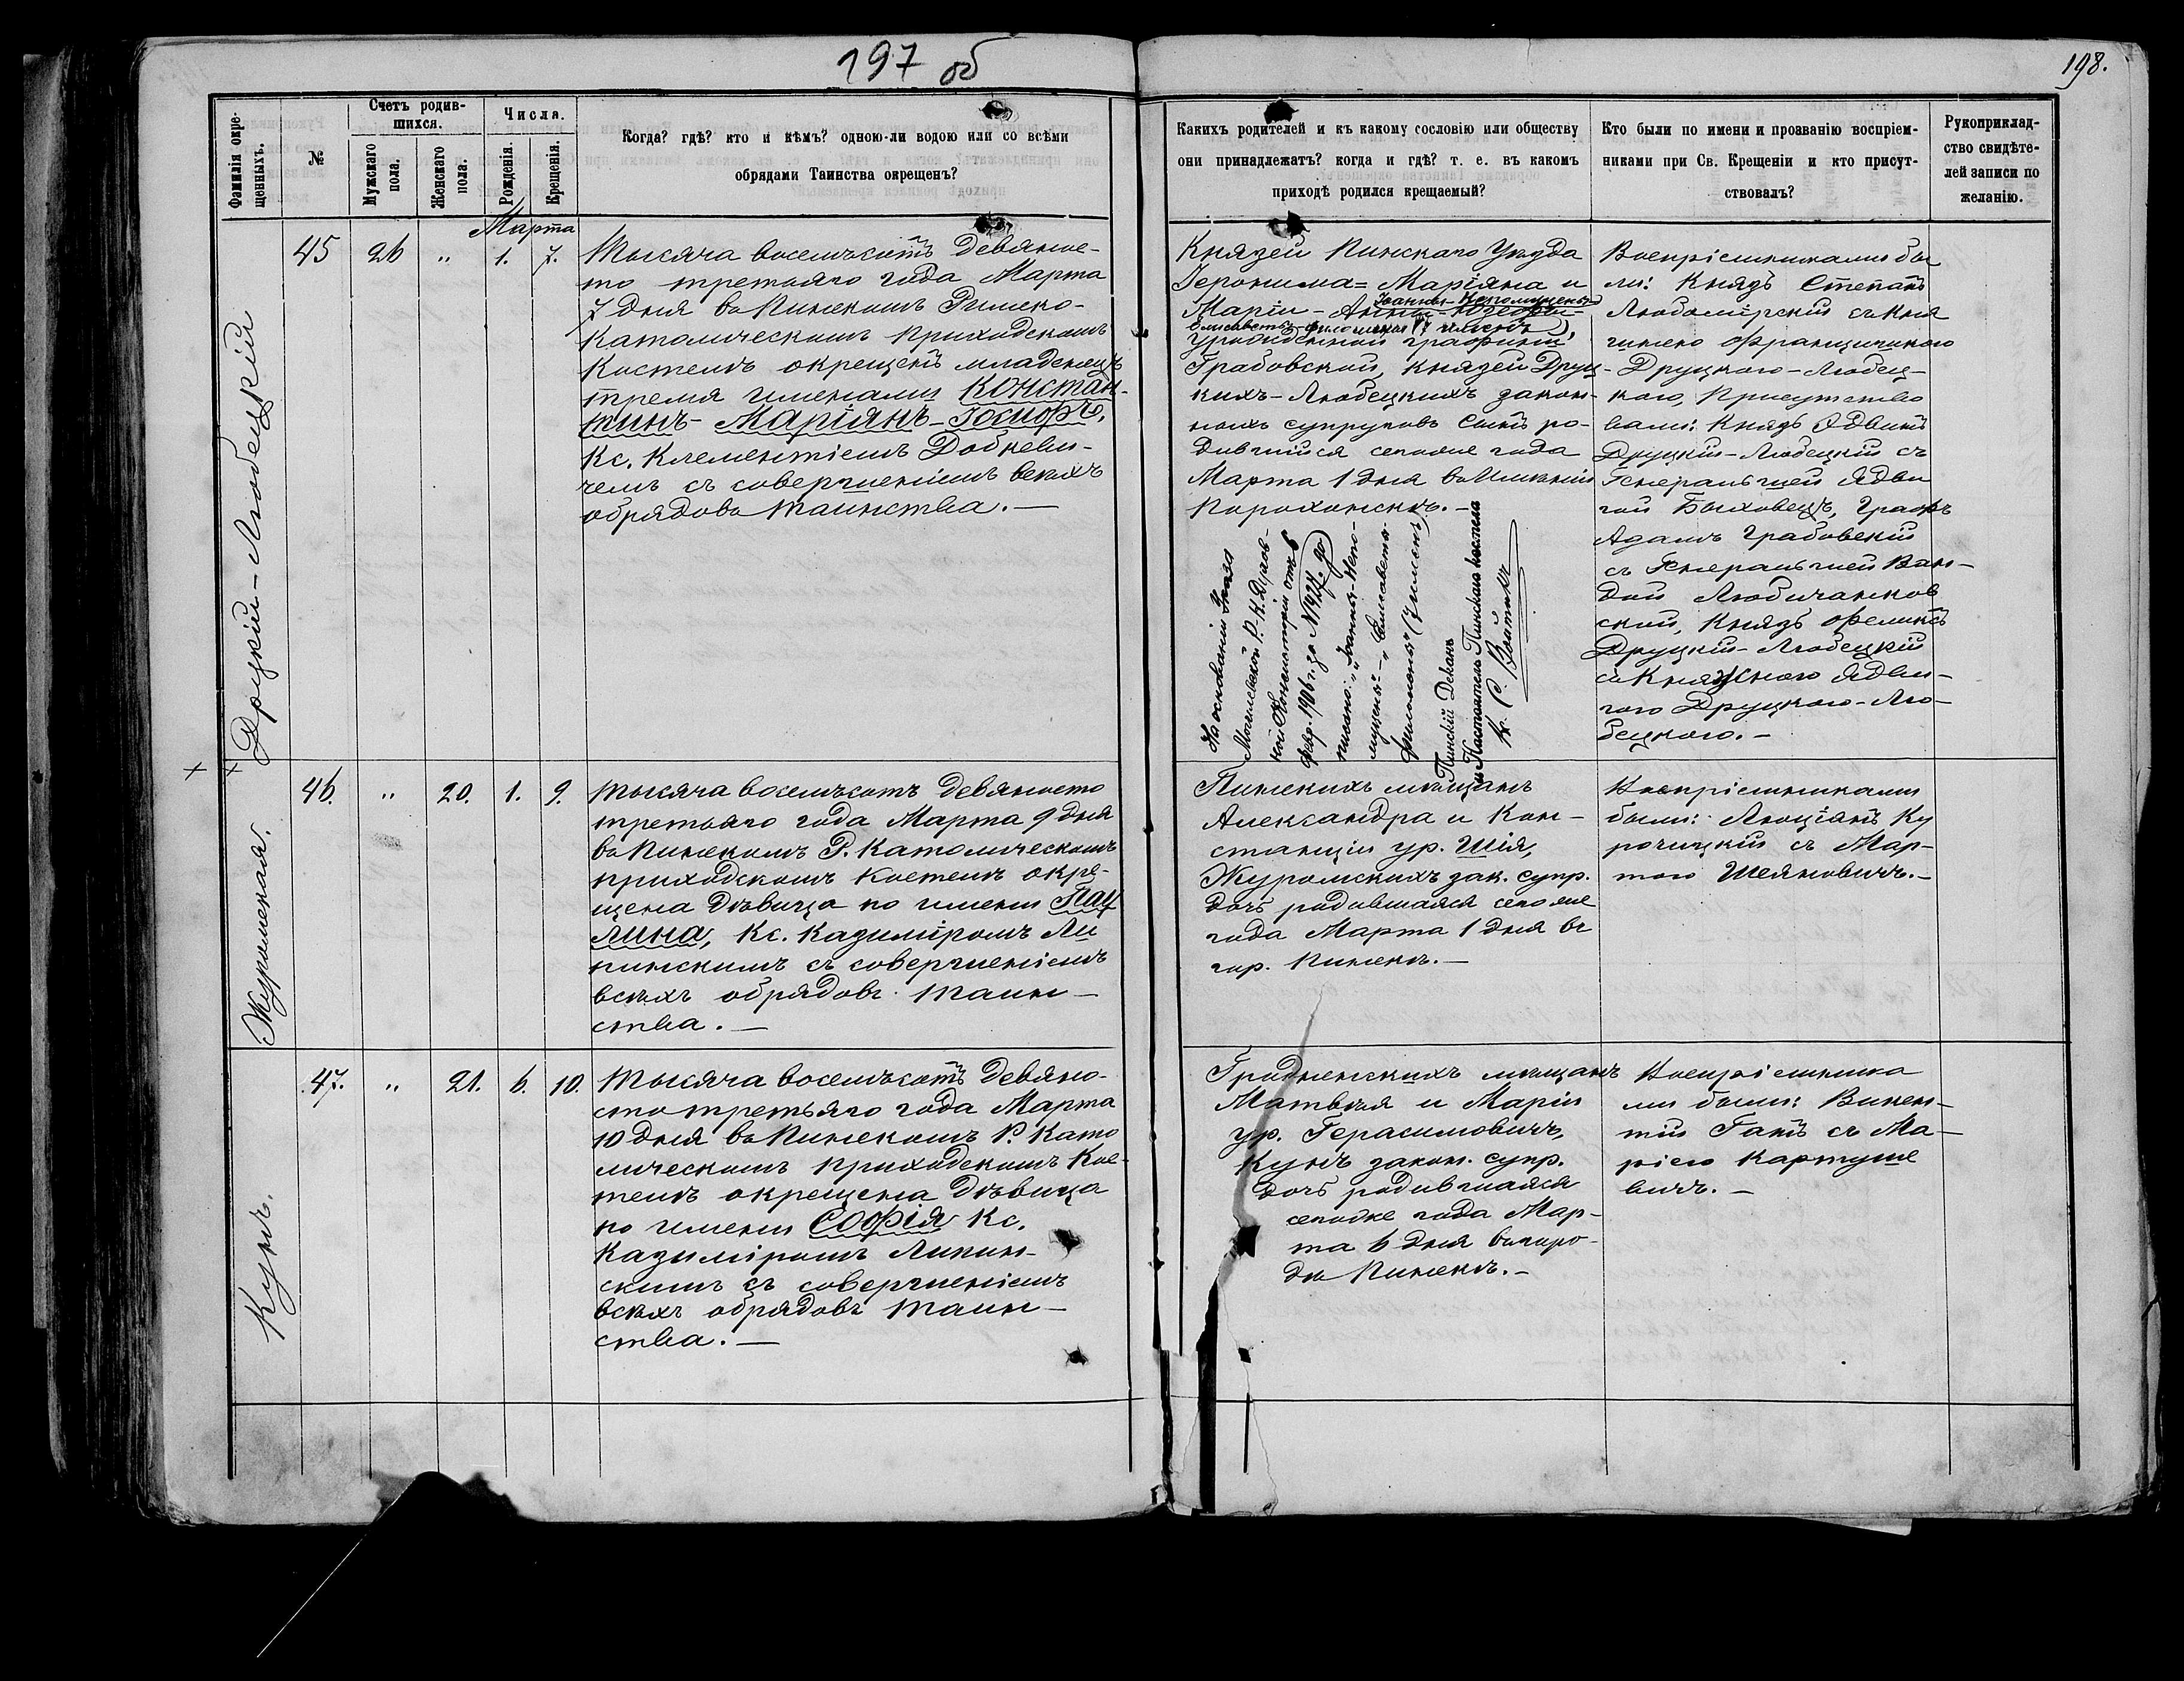 197 об
198.
Фамилія окре-
щенныхъ.
№
Счетъ родив-
шихся.
Мужскаго
пола.
Женскаго
пола.
Числа.
Рожденія.
Крещенія.
Когда? гдѣ? кто и кѣмъ? одною-ли водою или со всѣми
обрядами Таинства окрещенъ?
Какихъ родителей и къ какому сословію или обществу
они принадлежатъ? когда и гдѣ? т. е. въ какомъ
приходѣ родился крещаемый?
Кто были по имени и прозванію воспріем-
никами при Св. Крещеніи и кто присут-
ствовалъ?
Рукоприклад-
ство свидѣте-
лей записи по
желанію.
Марта
Друцкій-Любецкій
45 26 „ 1. 7.
Тысяча восемьсотъ девянос-
то третьяго года Марта
7 дня въ Пинскомъ Римско-
Католическомъ приходскомъ
Костелѣ окрещенъ младенецъ
тремя именами Констан-
тинъ-Маріянъ-Іосифъ,
Кс. Клементіемъ Добкеви-
чемъ съ совершеніемъ всѣхъ
обрядовъ таинства. —
Князей Пинскаго Уѣзда
Іеронима=Маріяна и
Іоанны-Непомуцены
Маріи-Анны-Юзефы-
Елисаветы-Филомены (7 именъ),
урожденной графини
Грабовской, князей Друц-
кихъ-Любецкихъ закон-
ныхъ супруговъ сынъ ро-
дившійся сегоже года
Марта 1 дня въ Имѣніи
Порохонскъ. —
На основаніи Указа
Могилевской Р.-К. Духов-
ной Консисторіи отъ 8
Февр. 1906 г. за N 1427. до
писано: „Іоанны-Непо-
муцены" - „Елисаветы-
Филомены" (7 именъ)
Пинскій Деканъ
и Настоятель Пинскаго Костела
Кс.
Воспріемниками бы
ли: Князь Степанъ
Любомірскій съ Кня
гинею Францишкою
Друцкою-Любец-
кою, Присутство
вали: Князь Эдвинъ
Друцкій-Любецкій съ
Генеральшей Ядви
гой Быховецъ, Графъ
Адамъ Грабовскій
съ Генеральшей Ван-
дой Любичанков
ской, Князь Феликсъ
Друцкій-Любецкій
съ Княжною Ядви-
гою Друцкою-Лю-
бецкою. —
Журомская.
46. „ 20. 1. 9.
Тысяча восемьсотъ девяносто
третьяго года Марта 9 дня
въ Пинскомъ Р. Католическомъ
приходскомъ Костелѣ окре-
щена дѣвица по имени Пау
лина, Кс. Казиміромъ Ли
пинскимъ съ совершеніемъ
всѣхъ обрядовъ таин-
ства. —
Пинскихъ мѣщанъ
Александра и Кон-
станціи ур. Шія,
Журомскихъ зак. супр.
дочь родившаяся сегоже
года Марта 1 дня въ
гор. Пинскѣ. —
Воспріемниками
были: Люціянъ Ку
рочицкій съ Мар-
тою Шеяновичъ. —
Кунъ.
47. „ 21. 6. 10.
Тысяча восемьсотъ девяно-
сто третьяго года Марта
10 дня въ Пинскомъ Р. Като
лическомъ приходскомъ Кос-
телѣ окрещена дѣвица
по имени Софія Кс.
Казиміромъ Липин-
скимъ съ совершеніемъ
всѣхъ обрядовъ таин-
ства. —
Гродненскихъ мѣщанъ
Матвѣя и Маріи
ур. Герасимовичъ,
Кунъ закон. супр.
дочь родившаяся
сегоже года Мар-
та 6 дня въ горо-
дѣ Пинскѣ. —
Воспріемника
ми были: Викен-
тій Ганъ съ Ма-
ріею Картуше
вичъ. —